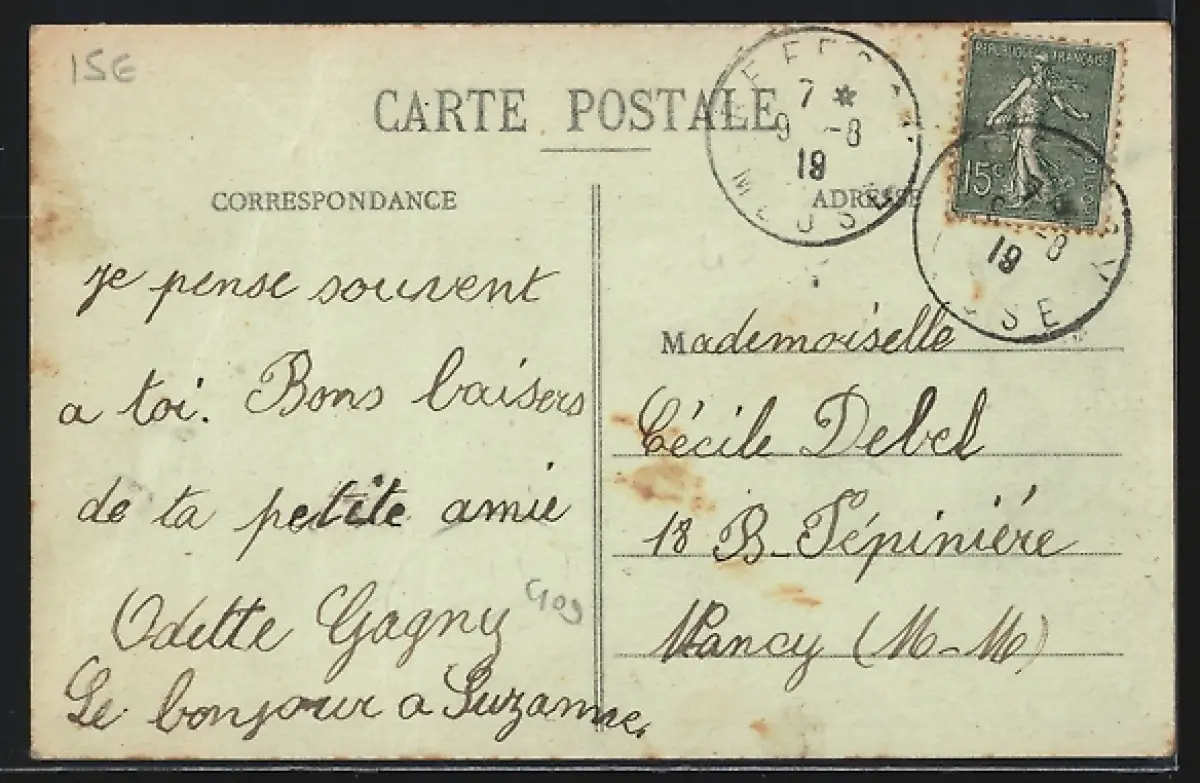 15€
CARTE POSTALE
CORRESPONDANCE
je pense souvent
a toi. Bons baisers
de ta petite amie
Odette Gagny
Le bonjour a Suzanne.
409
7 *
9 -8
19
MEUSE
REPUBLIQUE FRANÇAISE
15c
-8
19
SE
ADRESSE
Mademoiselle
Cécile Debel
18 B-Pépinière
Nancy (M-M)